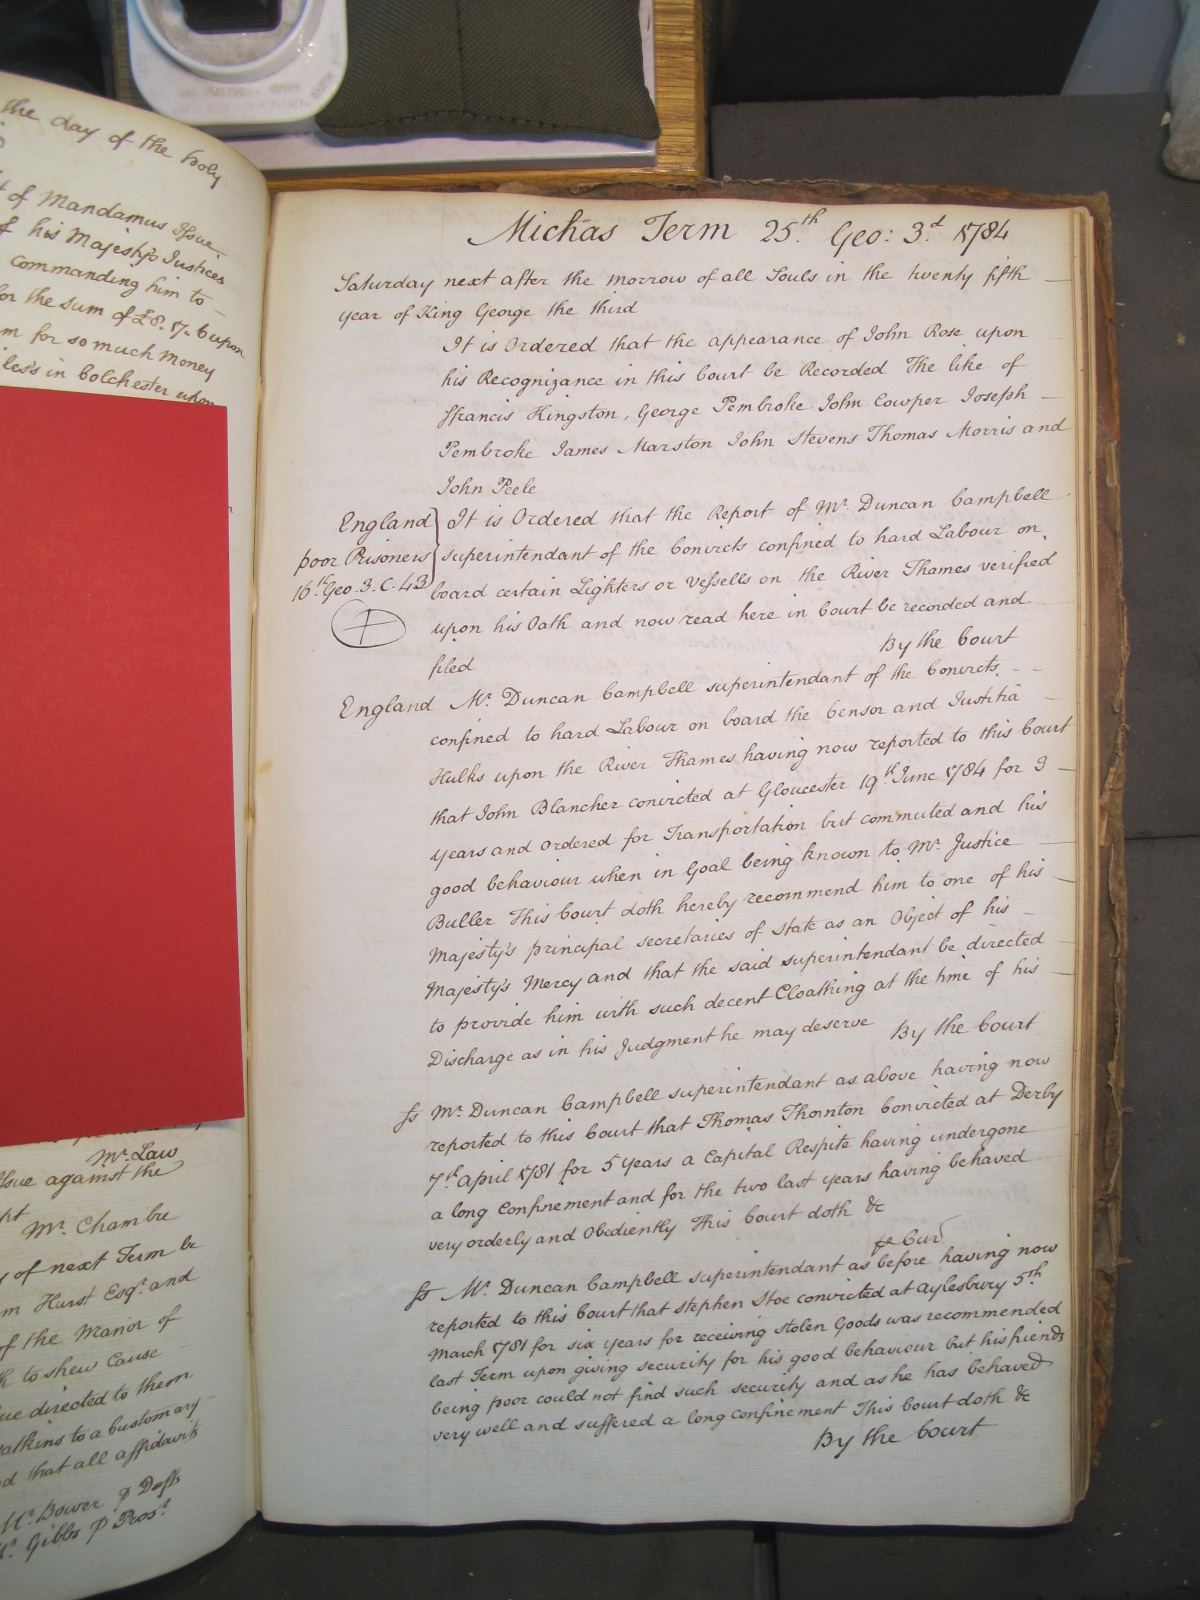 the day of the holy
of Mandamus Issue
of his Majesty's Justices
commanding him to
for the sum of £8.17.6 upon
m for so much money
les's in Colchester upon
Mr. Law
Issue against the
Mr. Chambre
of next Term be
m Hurst Esqr. and
of the Manor of
to shew Cause
ue directed to them
atkins to a Customary
d that all affidavits
Mr. Bower p Defts
Mr. Gibbs p Prosr.
Michās Term 25.th Geo: 3.d 1784
Saturday next after the morrow of all Souls in the twenty fifth
year of King George the third
It is Ordered that the appearance of John Rose upon
his Recognizance in this Court be Recorded The like of
ffrancis Kingston, George Pembroke John Cowper Joseph
Pembroke James Marston John Stevens Thomas Morris and
John Peele
England } It is Ordered that the Report of Mr. Duncan Campbell
poor Prisoners superintendant of the Convicts confined to hard Labour on
16.th Geo. 3. C. 43 board certain Lighters or Vessells on the River Thames verified
upon his Oath and now read here in Court be recorded and
filed By the Court
England Mr. Duncan Campbell superintendant of the Convicts
confined to hard Labour on board the Censor and Justitia
Hulks upon the River Thames having now reported to this Court
that John Blancher convicted at Gloucester 19th June 1784 for 3
years and ordered for Transportation but commuted and his
good behaviour when in Goal being known to Mr. Justice
Buller This Court doth hereby recommend him to one of his
Majesty's principal secretaries of state as an Object of his
Majesty's Mercy and that the said superintendant be directed
to provide him with such decent Cloathing at the time of his
Discharge as in his Judgment he may deserve By the Court
fs Mr. Duncan Campbell superintendant as above having now
reported to this Court that Thomas Thornton Convicted at Derby
7th April 1781 for 5 years a Capital Respite having undergone
a long Confinement and for the two last years having behaved
very orderly and Obediently This Court doth &c
p Cur
fs Mr. Duncan Campbell superintendant as before having now
reported to this Court that Stephen Stoe convicted at Aylesbury 5th
March 1781 for six years for receiving stolen Goods was recommended
last Term upon giving security for his good behaviour but his friends
being poor could not find such security and as he has behaved
very well and suffered a long confinement This Court doth &c
By the Court